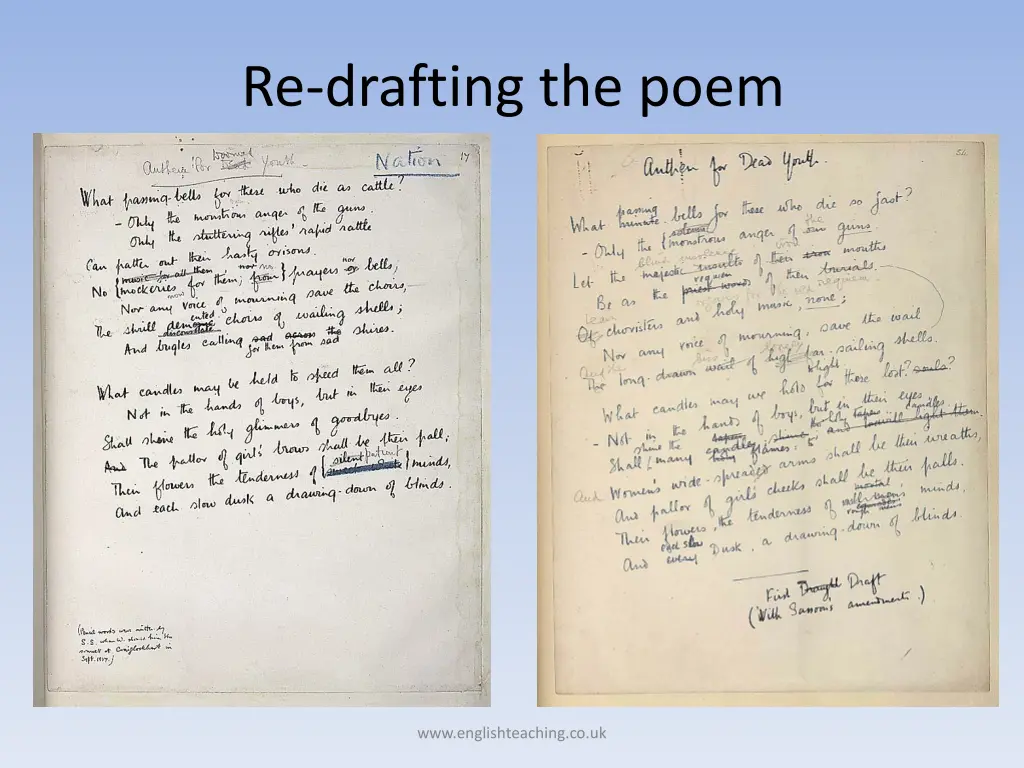 Re-drafting the poem
Doomed
Anthem for Dead Youth Nation 17
What passing-bells for these who die as cattle?
- Only the monstrous anger of the guns.
Only the stuttering rifles' rapid rattle
Can patter out their hasty orisons.
music for all them nor no nor
No mockeries for them; from prayers or bells,
Nor any voice of mourning save the choirs,
ented
The shrill demented choirs of wailing shells;
disconsolate
And bugles calling sad across the shires.
for them from sad
What candles may be held to speed them all?
Not in the hands of boys, but in their eyes
Shall shine the holy glimmers of goodbyes.
And The pallor of girls' brows shall be their pall;
silent patient
Their flowers the tenderness of minds,
And each slow dusk a drawing-down of blinds.
(Pencil words were written by
S.S. when I showed him the
sonnet at Craiglockhart in
Sept. 1917.)
Anthem for Dead Youth.
passing
What minute bells for these who die so fast?
solemn the
- Only the monstrous anger of our guns.
blind insolence
Let the majestic insults of their iron mouths
requiem
Be as the priest words of their burials.
Of choristers and holy music, none;
Nor any voice of mourning, save the wail
The long-drawn wail of high far-sailing shells.
to light
What candles may we hold for these lost? souls?
- Not in the hands of boys, but in their eyes
shine the tapers holy tapers candles
Shall many candles shine; and will light them.
holy flames: to
And Women's wide-spreaded arms shall be their wreaths,
And pallor of girls' cheeks shall be their palls.
mortal
Their flowers, the tenderness of minds,
rough men's
each slow
And every Dusk, a drawing-down of blinds.
First Draught Draft
(With Sassoon's amendments.)
www.englishteaching.co.uk